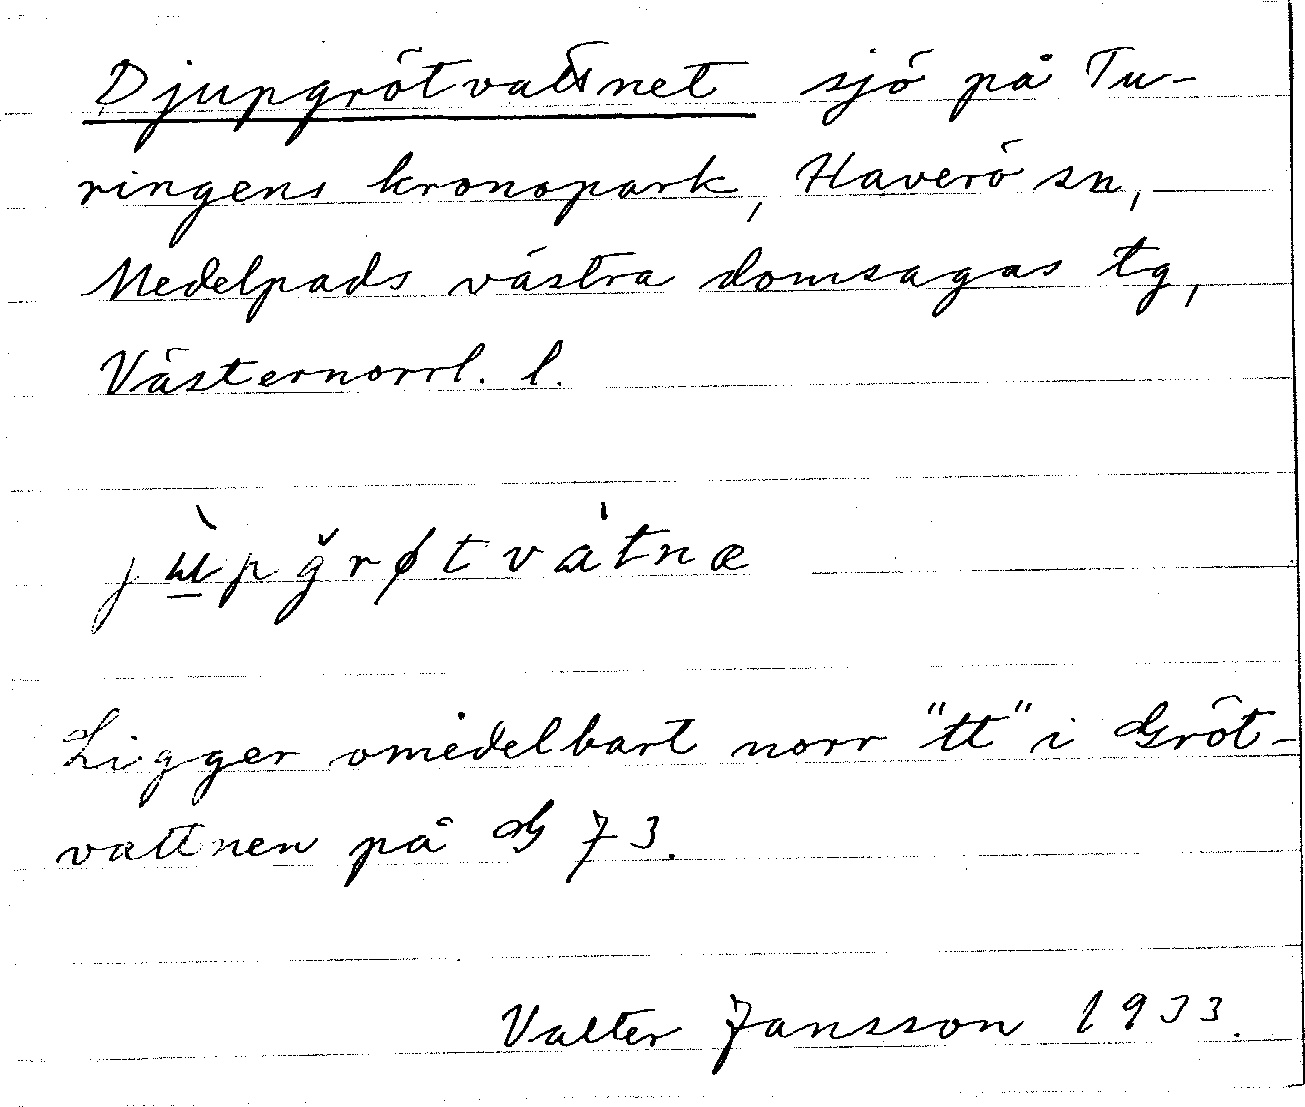 Djupgrötvattnet sjö på Tu-
ringens kronopark, Haverö sn,
Medelpads västra domsagas tg,
Västernorrl. l.
jὺ̲pğrøtvàtnæ
Ligger omedelbart norr "tt" i Gröt-
vattnen på G 73.
Valter Jansson 1933.